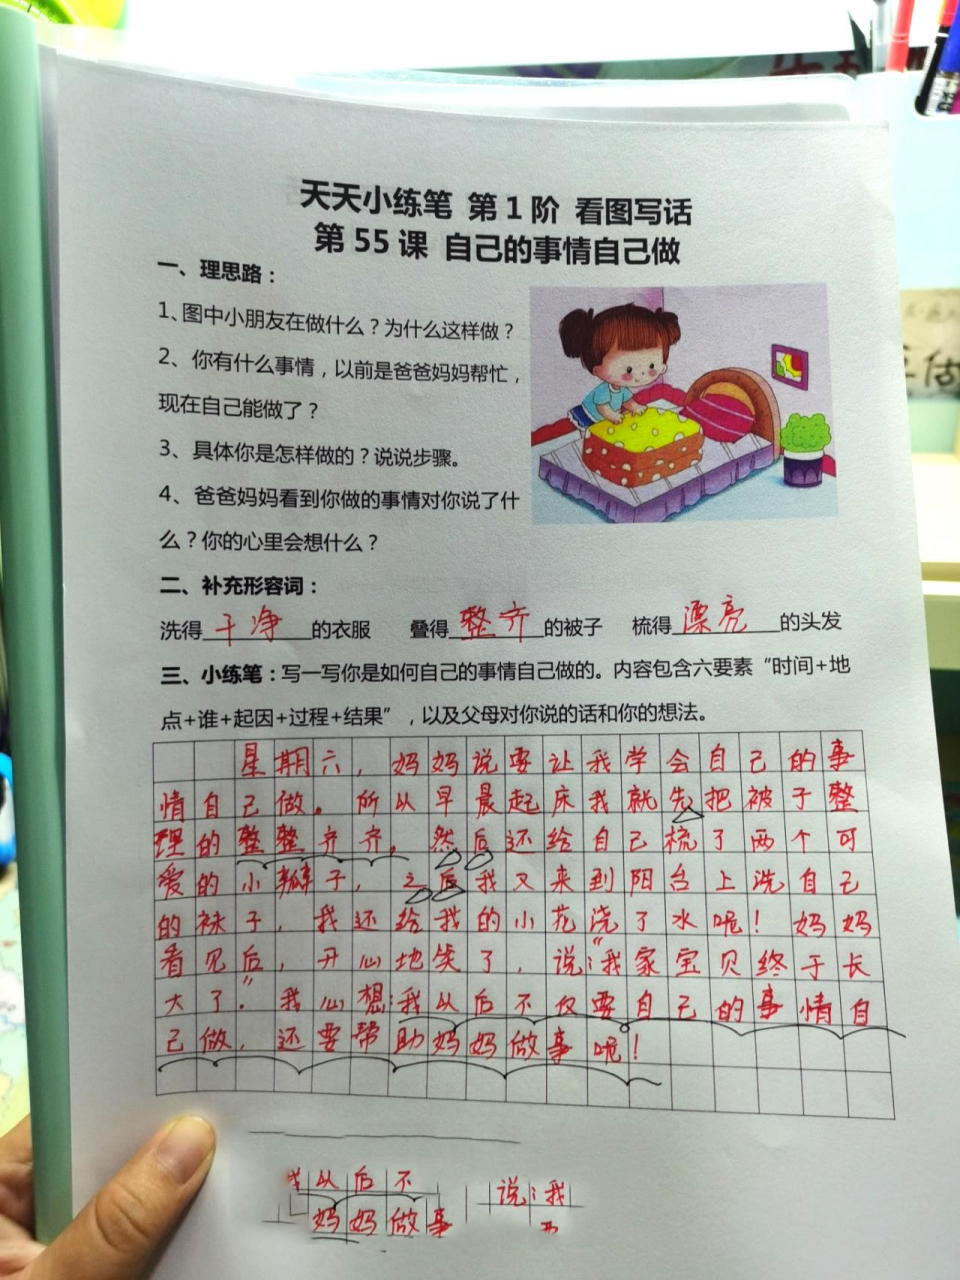 天天小练笔 第1阶 看图写话
第55课 自己的事情自己做
一、理思路：
1、图中小朋友在做什么？为什么这样做？
2、你有什么事情，以前是爸爸妈妈帮忙，
现在自己能做了？
3、具体你是怎样做的？说说步骤。
4、爸爸妈妈看到你做的事情对你说了什
么？你的心里会想什么？
二、补充形容词：
洗得干净的衣服 叠得整齐的被子 梳得漂亮的头发
三、小练笔：写一写你是如何自己的事情自己做的。内容包含六要素“时间+地
点+谁+起因+过程+结果”，以及父母对你说的话和你的想法。
星期六，妈妈说要让我学会自己的事
情自己做。所以早晨起床我就先把被子整
理的整整齐齐。然后还给自己梳了两个可
爱的小瓣子，之后我又来到阳台上洗自己
的袜子，我还给我的小花浇了水呢！妈妈
看见后，开心地笑了，说：“我家宝贝终于长
大了。”我心想：我以后不仅要自己的事情自
己做，还要帮助妈妈做事呢！
以后不
妈妈做事
说：我